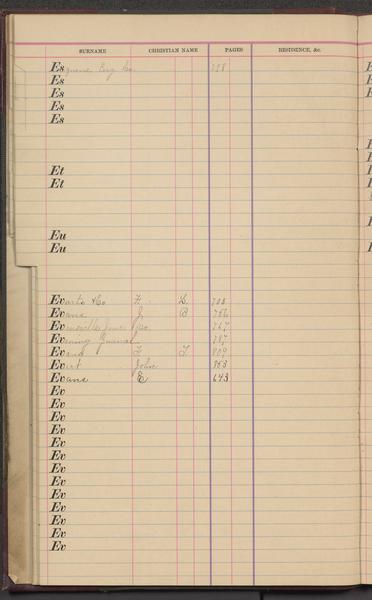 SURNAME CHRISTIAN NAME PAGES RESIDENCE, &c.
Es Eng Co.
Es
Es
Es
Es
Et
Et
Eu
Eu
Evarts & Co F. L.
Evans J B 756
Ev Co. 767
Evening Journal 787
Evans T. T. 809
Evert John 853
Evans E 643
Ev
Ev
Ev
Ev
Ev
Ev
Ev
Ev
Ev
Ev
Ev
Ev
Ev